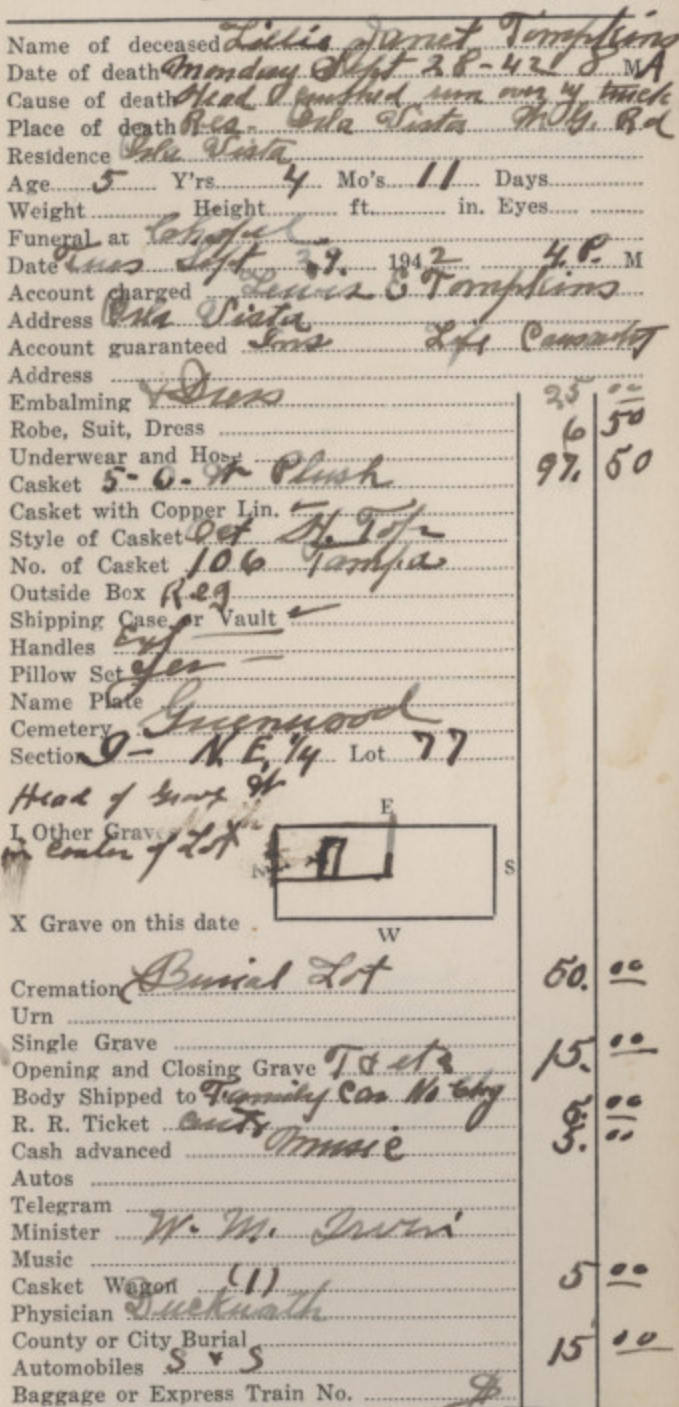 Name of deceased Lillis Janet Tompkins
Date of death Monday Sept 28-42 8 M A
Cause of death Head crushed run over by truck
Place of death Res. Orla Vista W.G. Rd
Residence Orla Vista
Age 5 Y'rs. 4 Mo's. 11 Days
Weight Height ft. in. Eyes
Funeral at Chapel
Date Tues Sept 29. 1942 4 P. M
Account charged Lewis E Tompkins
Address Orla Vista
Account guaranteed Ins Life
Address
Embalming & Dress 25 00
Robe, Suit, Dress 6 50
Underwear and Hose
Casket 5-0- W Plush 97. 50
Casket with Copper Lin.
Style of Casket Oct H. Top
No. of Casket 106 Tampa
Outside Box Reg
Shipping Case or Vault
Handles Ext
Pillow Set yes
Name Plate
Cemetery Greenwood
Section 9- N.E. 1/4 Lot 77
Head of Grave W
E
I Other Grave
in center of Lot
N S
X Grave on this date
W
Cremation Burial Lot 50. 00
Urn
Single Grave
Opening and Closing Grave T & etc 15. 00
Body Shipped to Family Car No Chg
R. R. Ticket 5. 00
Cash advanced music 5. 00
Autos
Telegram
Minister W. M. Irwin
Music
Casket Wagon (1) 5 00
Physician Duckwath
County or City Burial
Automobiles S & S 15 00
Baggage or Express Train No. $